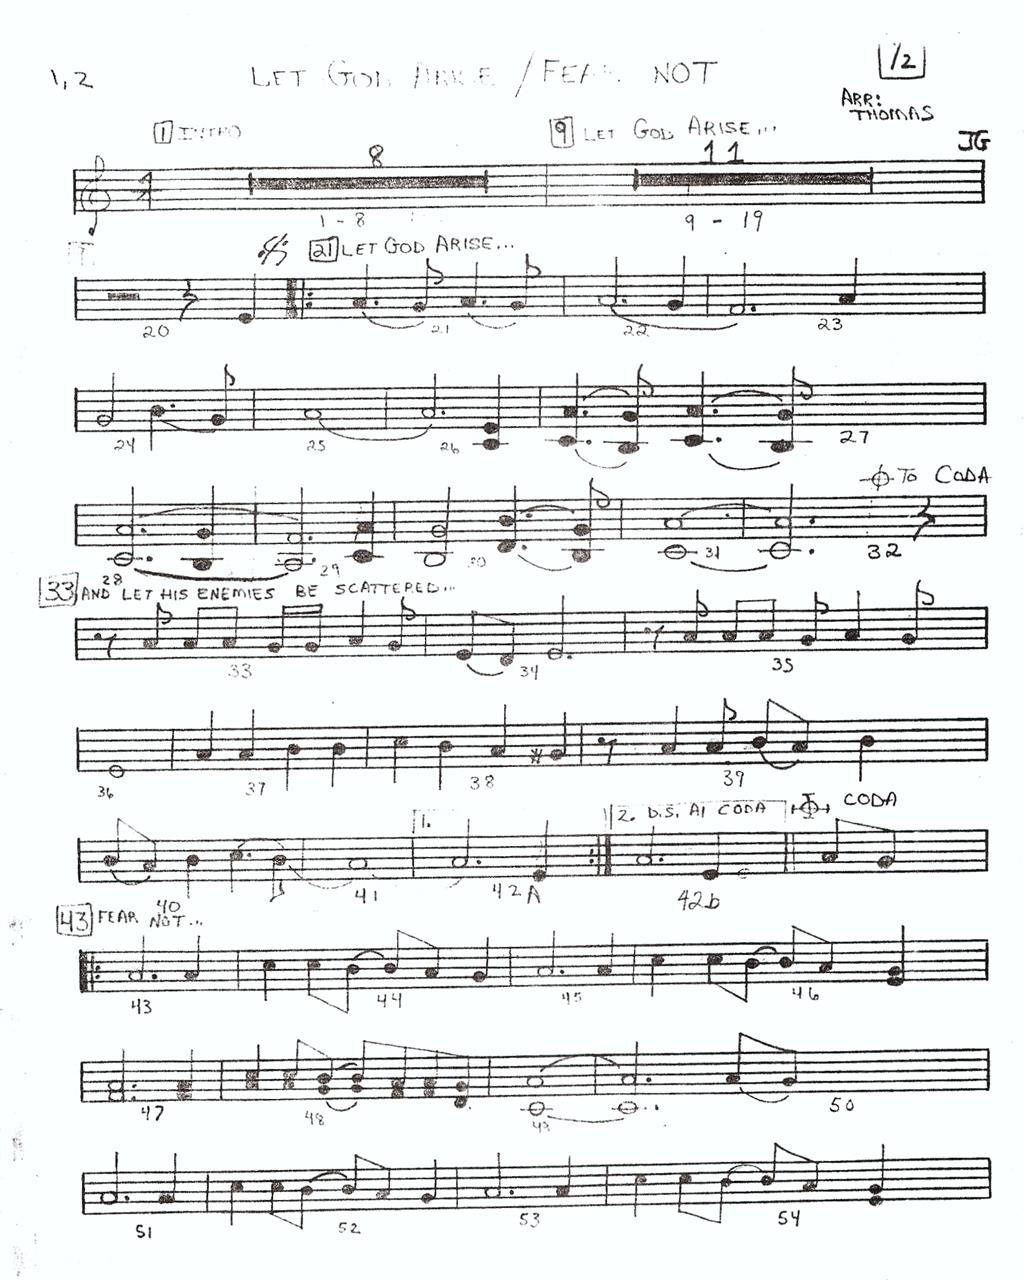 1,2 LET GOD ARISE / FEAR NOT 1/2
ARR:
THOMAS
JG
1 INTRO 9 LET GOD ARISE...
8 11
1 - 8 9 - 19
21 LET GOD ARISE...
20 21 22 23
24 25 26 27
TO CODA
28 29 30 31 32
33 AND LET HIS ENEMIES BE SCATTERED...
33 34 35
36 37 38 39
1. 2. D.S. Al CODA CODA
40 41 42A 42b
43 FEAR NOT...
43 44 45 46
47 48 49 50
51 52 53 54